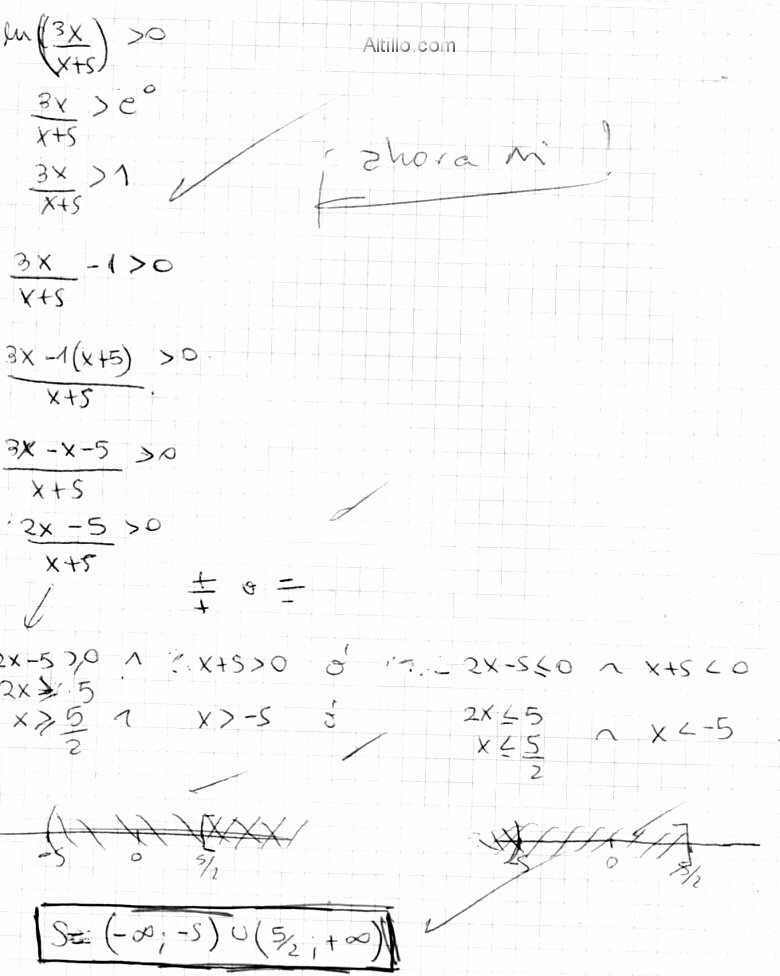 ln(3x/(x+5)) >0
Altillo.com
3x/(x+5) > e^0
¡ ahora si !
3x/(x+5) >1
3x/(x+5) -1 >0
3x -1(x+5)/(x+5) >0
3x -x-5/(x+5) >0
2x -5/(x+5) >0
+/+ o -/-
2x-5 ≥0 ∧ x+5>0 ó 2x-5≤0 ∧ x+5<0
2x ≥ 5 2x ≤ 5
x ≥ 5/2 ∧ x > -5 ó x ≤ 5/2 ∧ x < -5
-5 0 5/2 -5 0 5/2
S= (-∞; -5) ∪ (5/2; +∞)